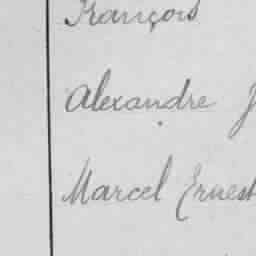 François
Alexandre J
Marcel Ernest